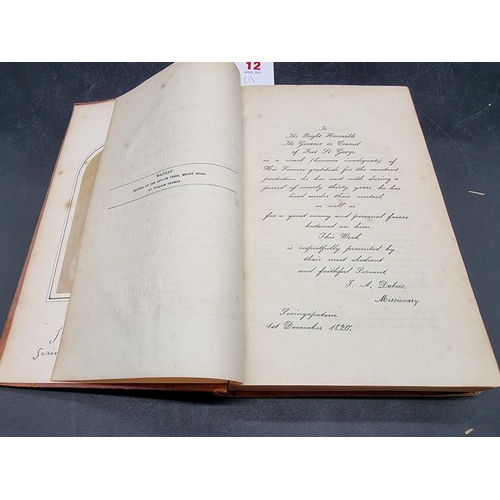 12
(1)
MADRAS
PRINTED AT THE ASYLUM PRESS, MOUNT ROAD,
BY WILLIAM THOMAS
To
The Right Honorable
The Governor in Council
of Fort St George
as a mark (however inadequate) of
His Sincere gratitude for the constant
protection he has met with during a
period of nearly thirty years he has
lived under their control
as well as
for a great many and personal favors
bestowed on him
This Work
is respectfully presented by
their most obedient
and faithful Servant
J. A. Dubois,
Missionary
Seringapatam,
1st December 1820.